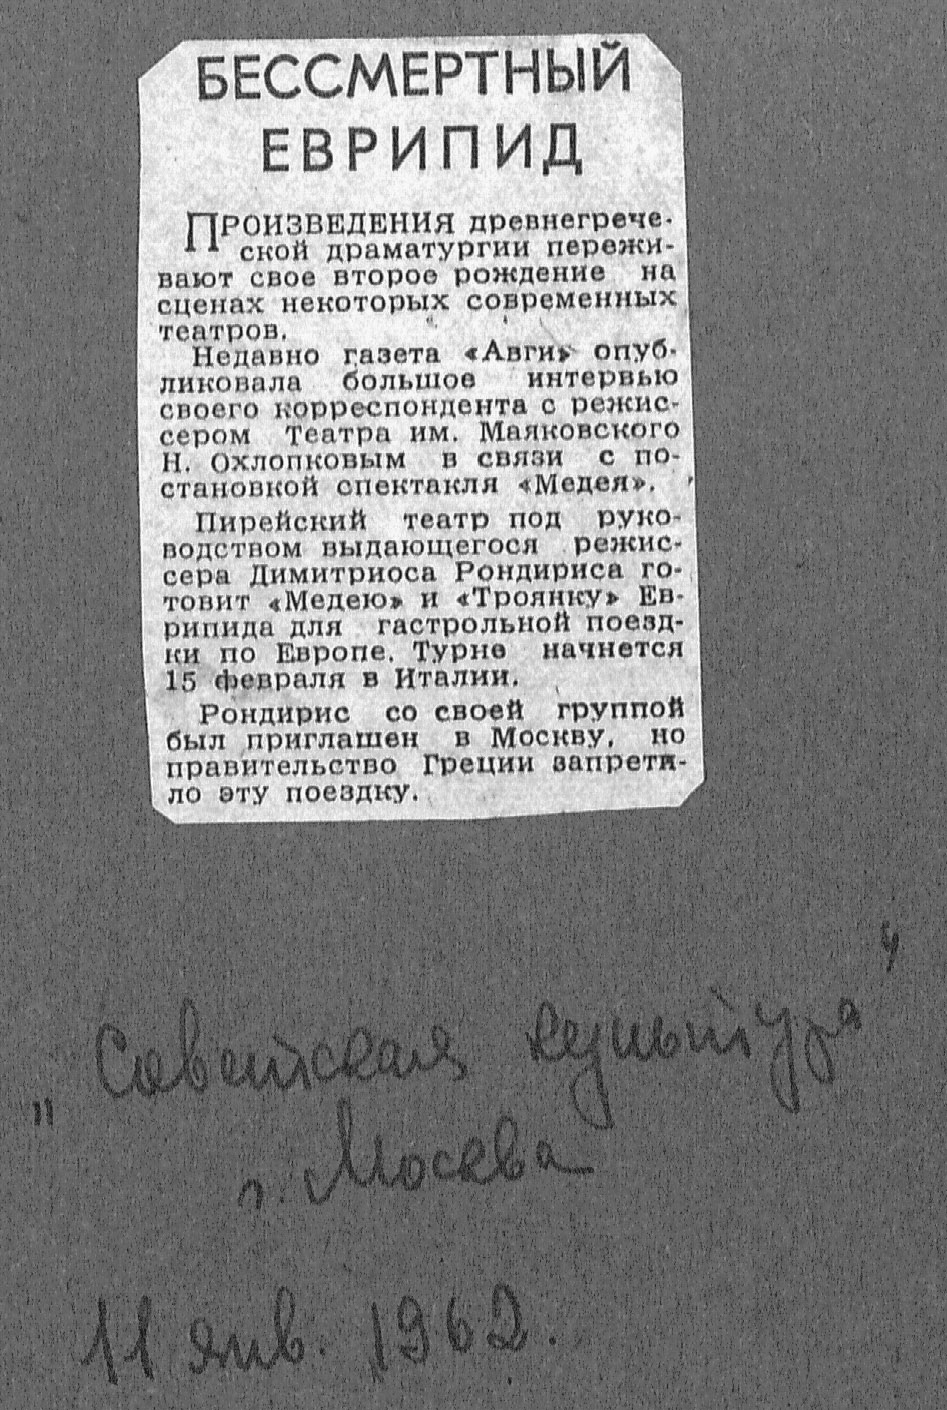 БЕССМЕРТНЫЙ
ЕВРИПИД
ПРОИЗВЕДЕНИЯ древнегрече-
ской драматургии пережи-
вают свое второе рождение на
сценах некоторых современных
театров.
Недавно газета «Авги» опуб-
ликовала большое интервью
своего корреспондента с режис-
сером Театра им. Маяковского
Н. Охлопковым в связи с по-
становкой спектакля «Медея».
Пирейский театр под руко-
водством выдающегося режис-
сера Димитриоса Рондириса го-
товит «Медею» и «Троянку» Ев-
рипида для гастрольной поезд-
ки по Европе. Турне начнется
15 февраля в Италии.
Рондирис со своей группой
был приглашен в Москву, но
правительство Греции запрети-
ло эту поездку.
„Советская культура"
г. Москва
11 янв. 1962.